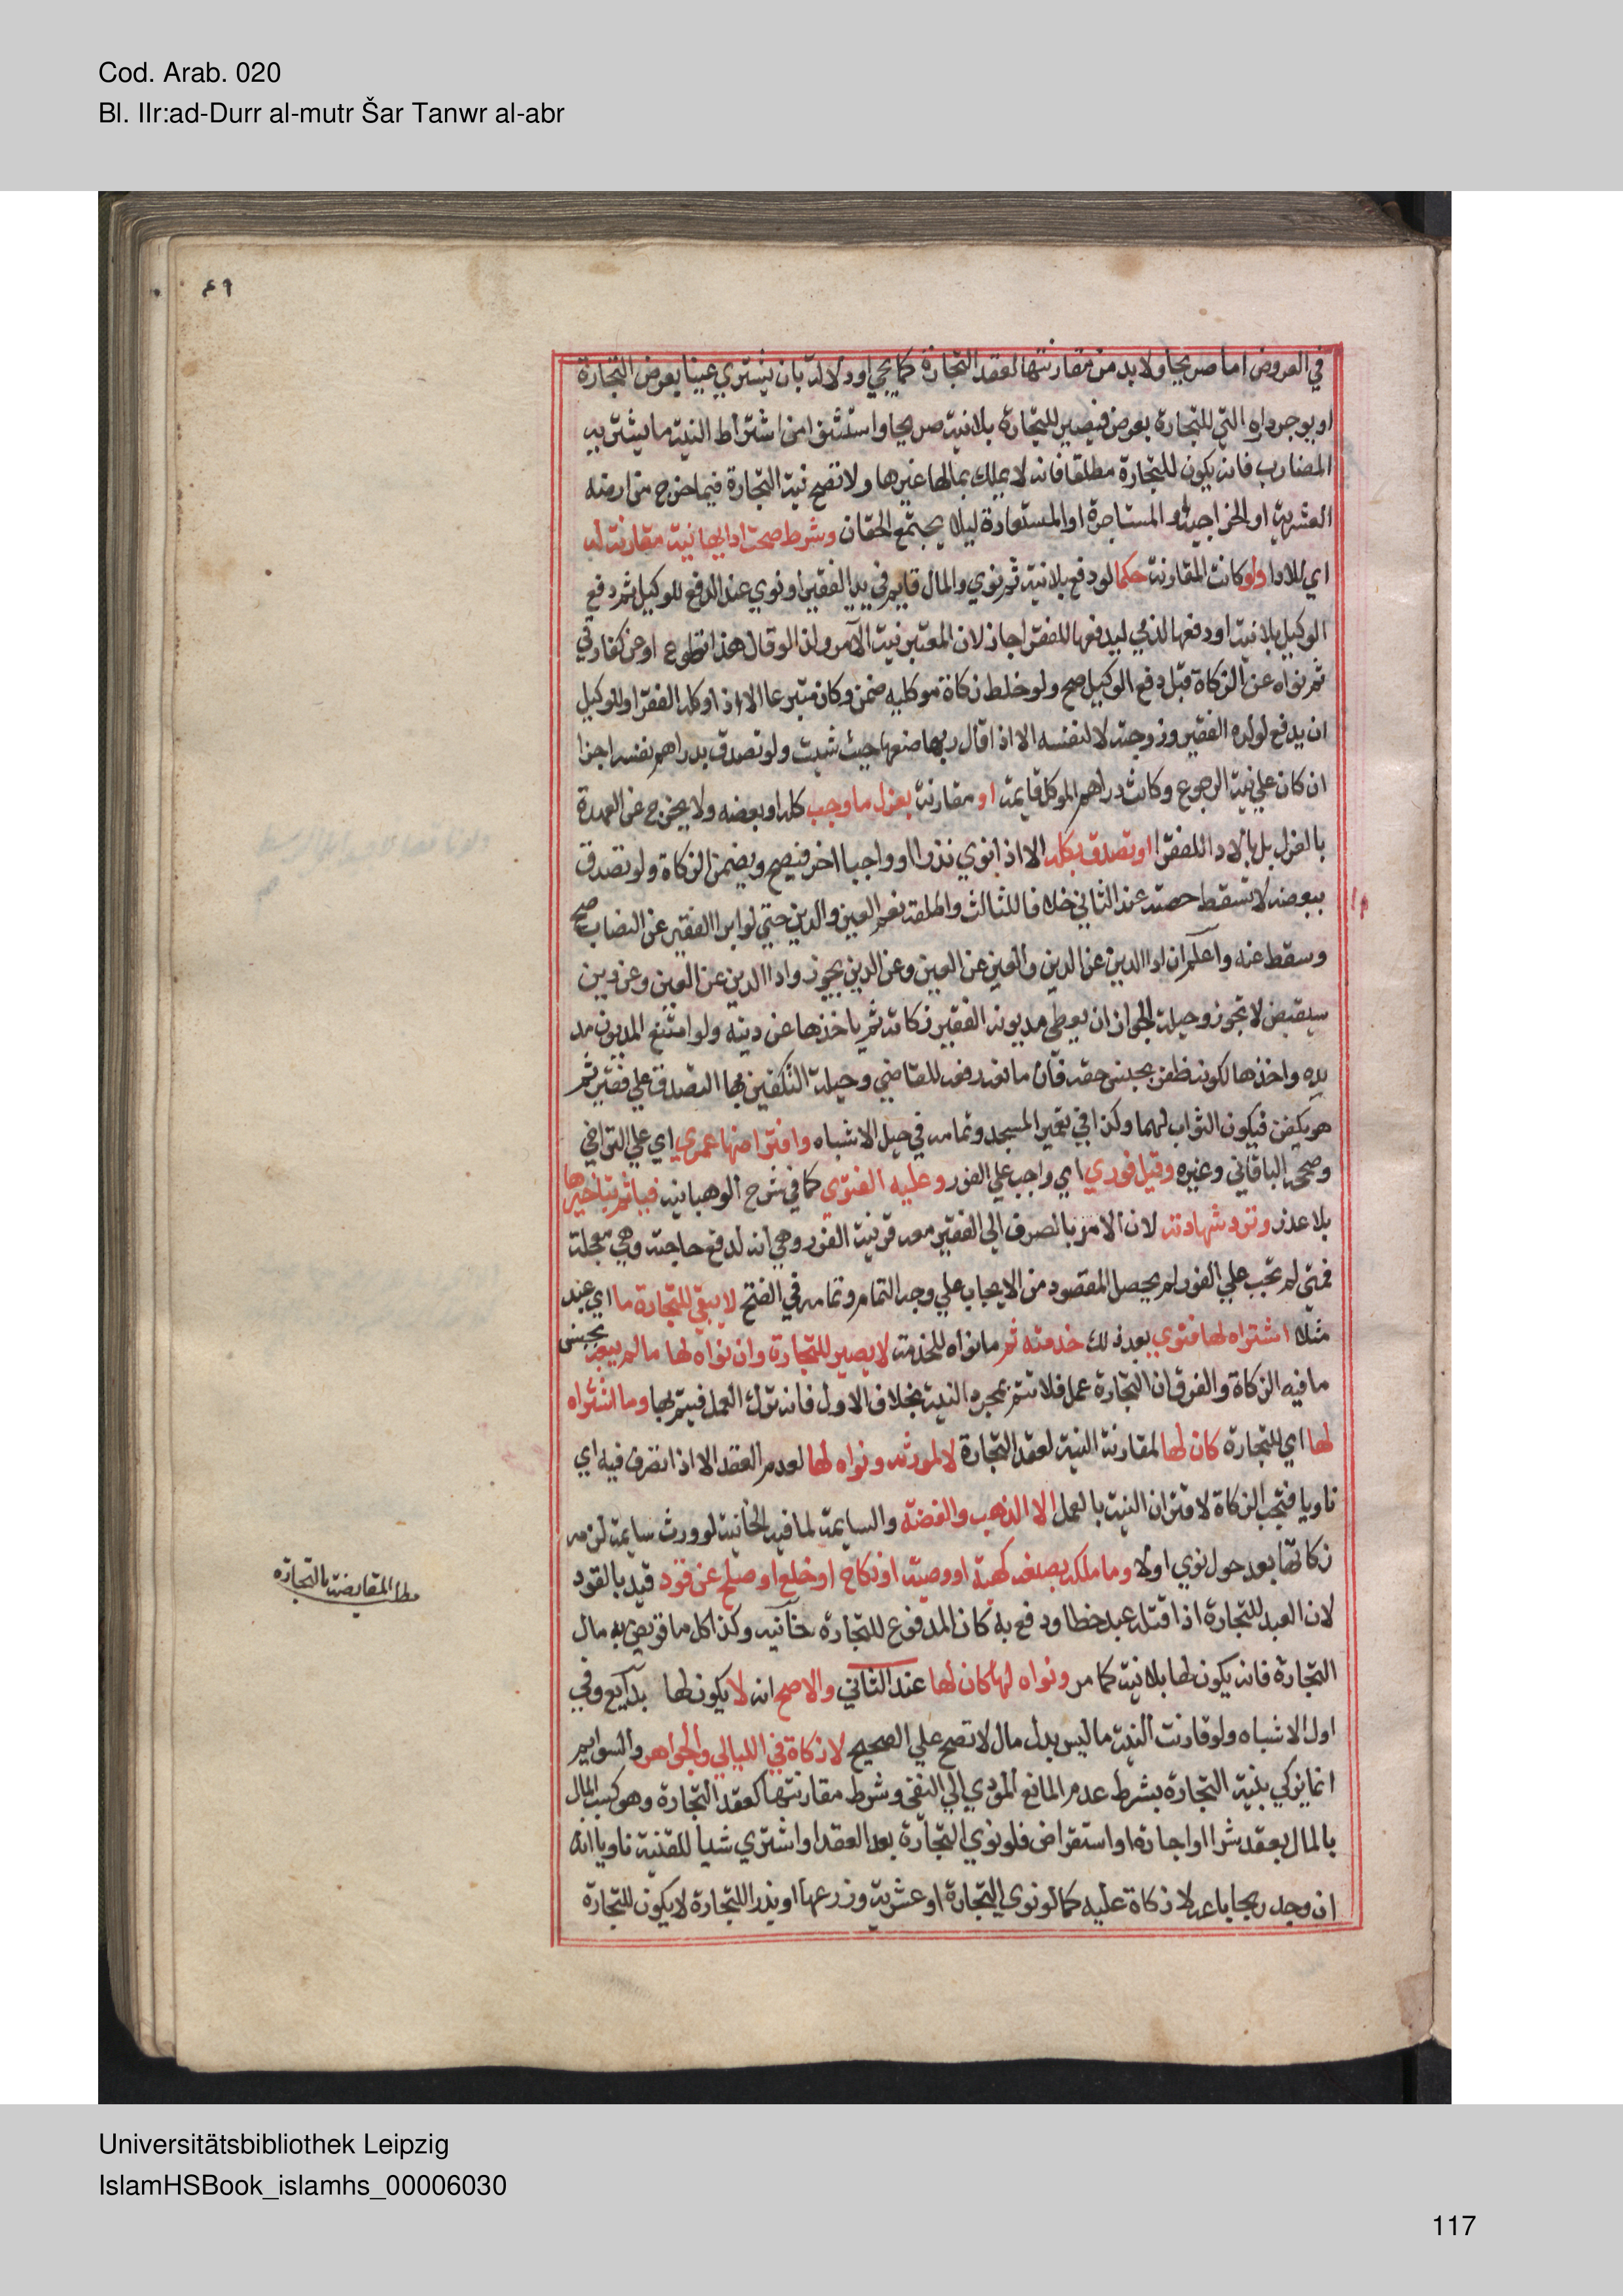 Cod. Arab. 020
Bl. IIr:ad-Durr al-mutr Šar Tanwr al-abr
في العروض اما صريحا ولا بد من مقارنتها لعقد التجارة كما يجي او دلالة بان يشتري عينا بعرض التجارة
او يوجر داره التي للتجارة بعرض فيصير للتجارة بلا نية صريحا واستثنوا من اشتراط النية ما يشتريه
المضارب فانه يكون للتجارة مطلقا فانه لا يملك بمالها غيرها ولا تصح نية التجارة فيما خرج من ارضه
العشرية او الخراجية او المستاجرة او المستعارة ليلا يجتمع الحقان وشرط صحة ادايها نية مقارنة له
اي للادا ولو كانت المقارنة حكما لو دفع بلا نية ثم نوي والمال قايم في يد الفقير او نوي عند الدفع للوكيل ثم دفع
الوكيل بلا نية او دفعها لذمي ليدفعها للفقرا جاز لان المعتبر نية الآمر ولذا لو قال هذا تطوع او عن كفارتي
ثم نواه عن الزكاة قبل دفع الوكيل صح ولو خلط زكاة موكليه ضمن وكان متبرعا الا اذا وكله الفقرا وللوكيل
ان يدفع لولده الفقير وزوجته لا لنفسه الا اذا قال ربها ضعها حيث شيت ولو تصدق بدراهم نفسه اجزا
ان كان علي نية الرجوع وكانت دراهم الموكل قايمة او مقارنة بعزل ما وجب كله او بعضه ولا يخرج عن العهدة
بالعزل بل بالادا للفقرا او تصدق بكله الا اذا نوي نذرا او واجبا اخر فيصح ويضمن الزكاة ولو تصدق
ببعضه لا تسقط حصته عند الثاني خلافا للثالث واطلقه فعم العين والدين حتي لو ابرا الفقير عن النصاب صح
وسقط عنه واعلم ان ادا الدين عن الدين والعين عن العين وعن الدين يجوز وادا الدين عن العين وعن دين
سيقبض لا يجوز وحيلة الجواز ان يعطي مديونه الفقير زكاته ثم ياخذها عن دينه ولو امتنع المديون مد
يده واخذها لكونه ظفر بجنس حقه فان مانعه رفعه للقاضي وحيلة التكفين بها التصدق علي فقير ثم
هو يكفن فيكون الثواب لهما وكذا في تعمير المسجد وتمامه في حيل الاشباه وافتراضها عمري اي علي التراخي
وصححه الباقاني وغيره وقيل فوري اي واجب علي الفور وعليه الفتوي كما في شرح الوهبانية فياثم بتاخيرها
بلا عذر وترد شهادته لان الامر بالصرف الي الفقير معه قرينة الفور وهي انه لدفع حاجته وهي معجلة
فمتي لم تجب علي الفور لم يحصل المقصود من الايجاب علي وجه التمام وتمامه في الفتح لا يبقي للتجارة ما اي عبد
مثلا اشتراه لها فنوي بعد ذلك خدمته ثم ما نواه للخدمة لا يصير للتجارة وان نواه لها ما لم يبعه بجنس
ما فيه الزكاة والفرق ان التجارة عمل فلا تتم بمجرد النية بخلاف الاول فانه ترك العمل فيتم بها وما اشتراه
لها اي للتجارة كان لها لمقارنة النية لعقد التجارة لا ما ورثه ونواه لها لعدم العقد الا اذا تصرف فيه اي
ناويا فتجب الزكاة لاقتران النية بالعمل الا الذهب والفضة والسايمة لما في الخانية لو ورث سايمة لزمه
زكاتها بعد حول نوي او لا وما ملكه بصنعه كهبة او وصية او نكاح او خلع او صلح عن قود قيد بالقود
لان العبد للتجارة اذا قتله عبد خطا ودفع به كان المدفوع للتجارة خانية وكذا كل ما قويض به مال
التجارة فانه يكون لها بلا نية كما مر ونواه لها كان لها عند الثاني والاصح انه لا يكون لها بدايع وفي
اول الاشباه ولو قارنت النية ما ليس بدل مال لا تصح علي الصحيح لا زكاة في اللئالي والجواهر والسوايم
انما يزكي بنية التجارة بشرط عدم المانع المودي الي الثني وشرط مقارنتها لعقد التجارة وهو كسب المال
بالمال بعقد شرا او اجارة او استقراض فلو نوي التجارة بعد العقد او اشتري شيا للقنية ناويا انه
ان وجد ربحا باعه لا زكاة عليه كما لو نوي التجارة او عشرية وزرعها او بذر اللتجارة لا يكون للتجارة
مطلب المقايضة بالتجارة
Universitätsbibliothek Leipzig
IslamHSBook_islamhs_00006030
117